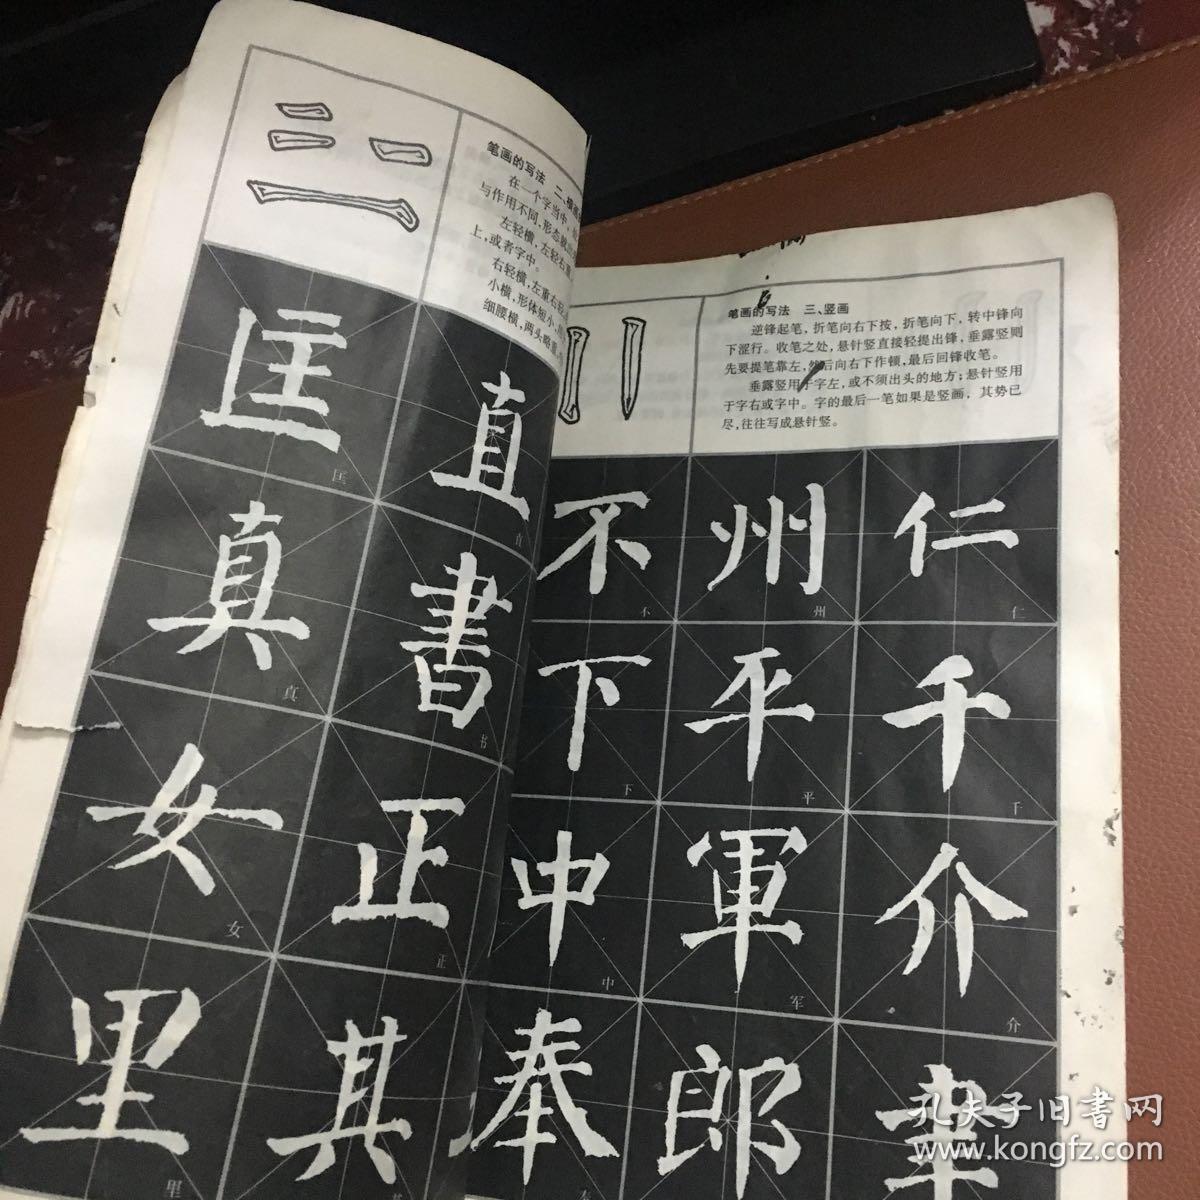 笔画的写法 二、横画
在一个字当中,
与作用不同,形态
左轻横,左轻右重
上,或者字中。
右轻横,左重右轻
小横,形体短小,
细腰横,两头略重,
匡 直
匡 直
真 書
真 书
女 正
女 正
里 其
里 其
笔画的写法 三、竖画
逆锋起笔,折笔向右下按,折笔向下,转中锋向
下涩行。收笔之处,悬针竖直接轻提出锋,垂露竖则
先要提笔靠左,然后向右下作顿,最后回锋收笔。
垂露竖用于字左,或不须出头的地方;悬针竖用
于字右或字中。字的最后一笔如果是竖画,其势已
尽,往往写成悬针竖。
不 州 仁
不 州 仁
下 平 千
下 平 千
中 軍 介
中 军 介
奉 郎
孔夫子旧書网
www.kongfz.com